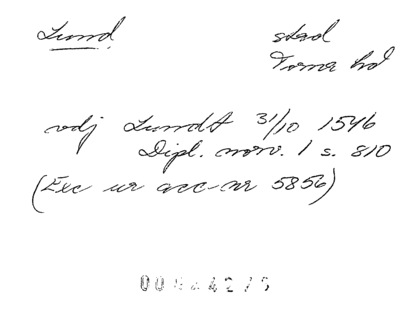 Lund stad
Torna hd
vdj Lundt 31/10 1546
Dipl. norv. 1 s. 810
(Exc ur acc-nr 5856)